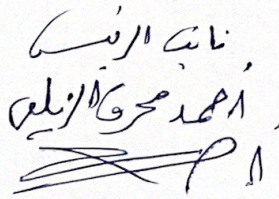 نائب الرئيس
أحمد محرق الزيلعي